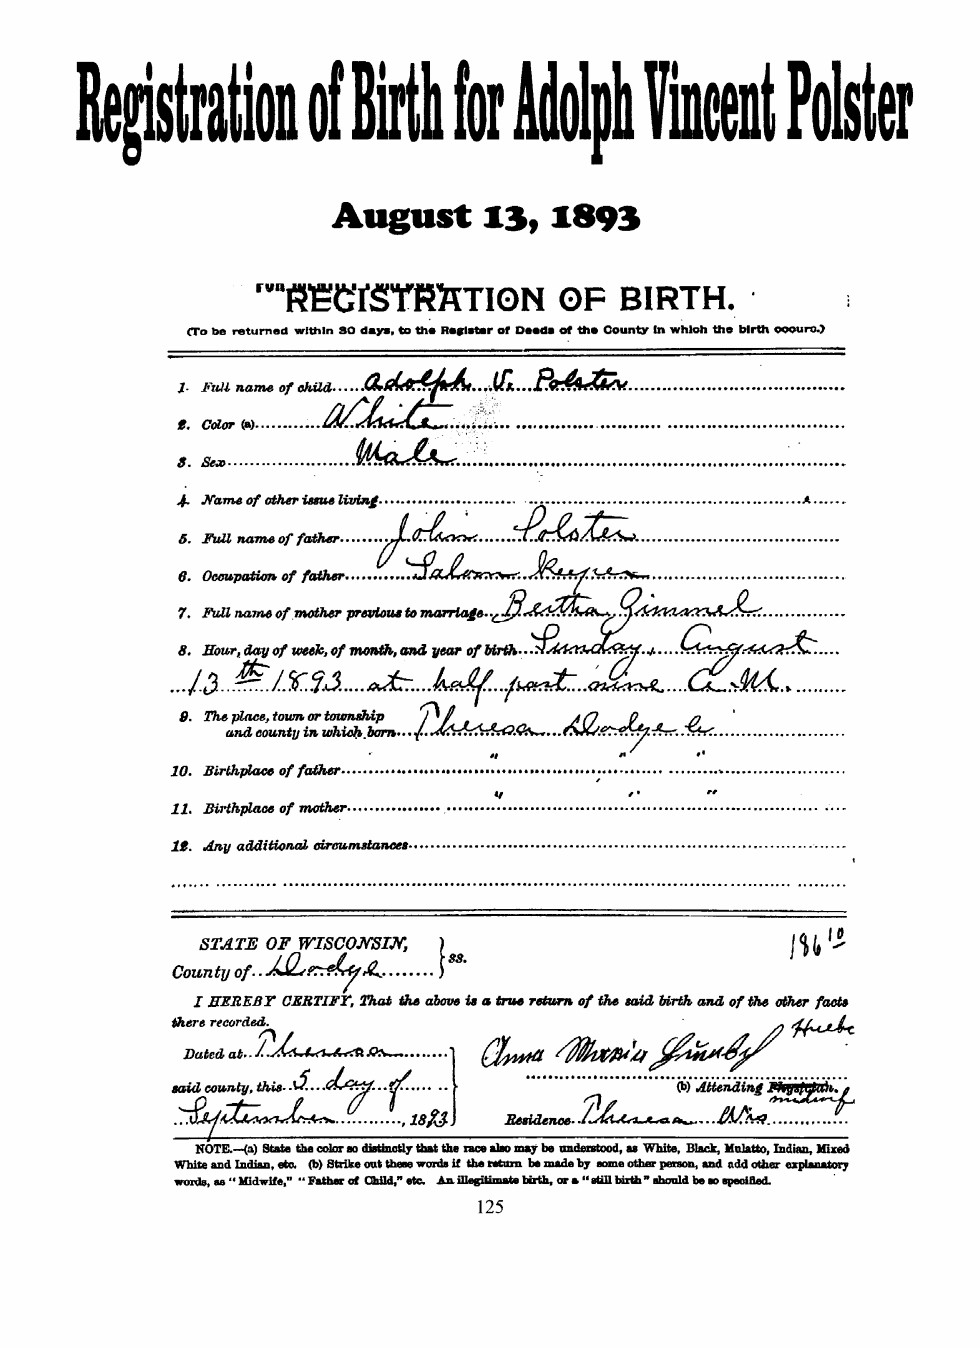 Registration of Birth for Adolph Vincent Polster
August 13, 1893
REGISTRATION OF BIRTH.
(To be returned within 30 days, to the Register of Deeds of the County in which the birth occurs.)
1. Full name of child Adolph V. Polster
2. Color (a) White
3. Sex Male
4. Name of other issue living
5. Full name of father John Polster
6. Occupation of father Saloon Keeper
7. Full name of mother previous to marriage Bertha Gimmel
8. Hour, day of week, of month, and year of birth Sunday, August
13th 1893 at half past nine A.M.
9. The place, town or township
and county in which born Theresa Dodge Co
" " "
10. Birthplace of father
" " "
11. Birthplace of mother
12. Any additional circumstances
STATE OF WISCONSIN,
County of Dodge } ss.
186 10
I HEREBY CERTIFY, That the above is a true return of the said birth and of the other facts
there recorded.
Dated at Theresa
Anna Maria
said county, this 5 day of
(b) Attending Physician.
midwife
September, 1893
Residence Theresa Wis
NOTE.—(a) State the color so distinctly that the race also may be understood, as White, Black, Mulatto, Indian, Mixed
White and Indian, etc. (b) Strike out these words if the return be made by some other person, and add other explanatory
words, as "Midwife," "Father of Child," etc. An illegitimate birth, or a "still birth" should be so specified.
125